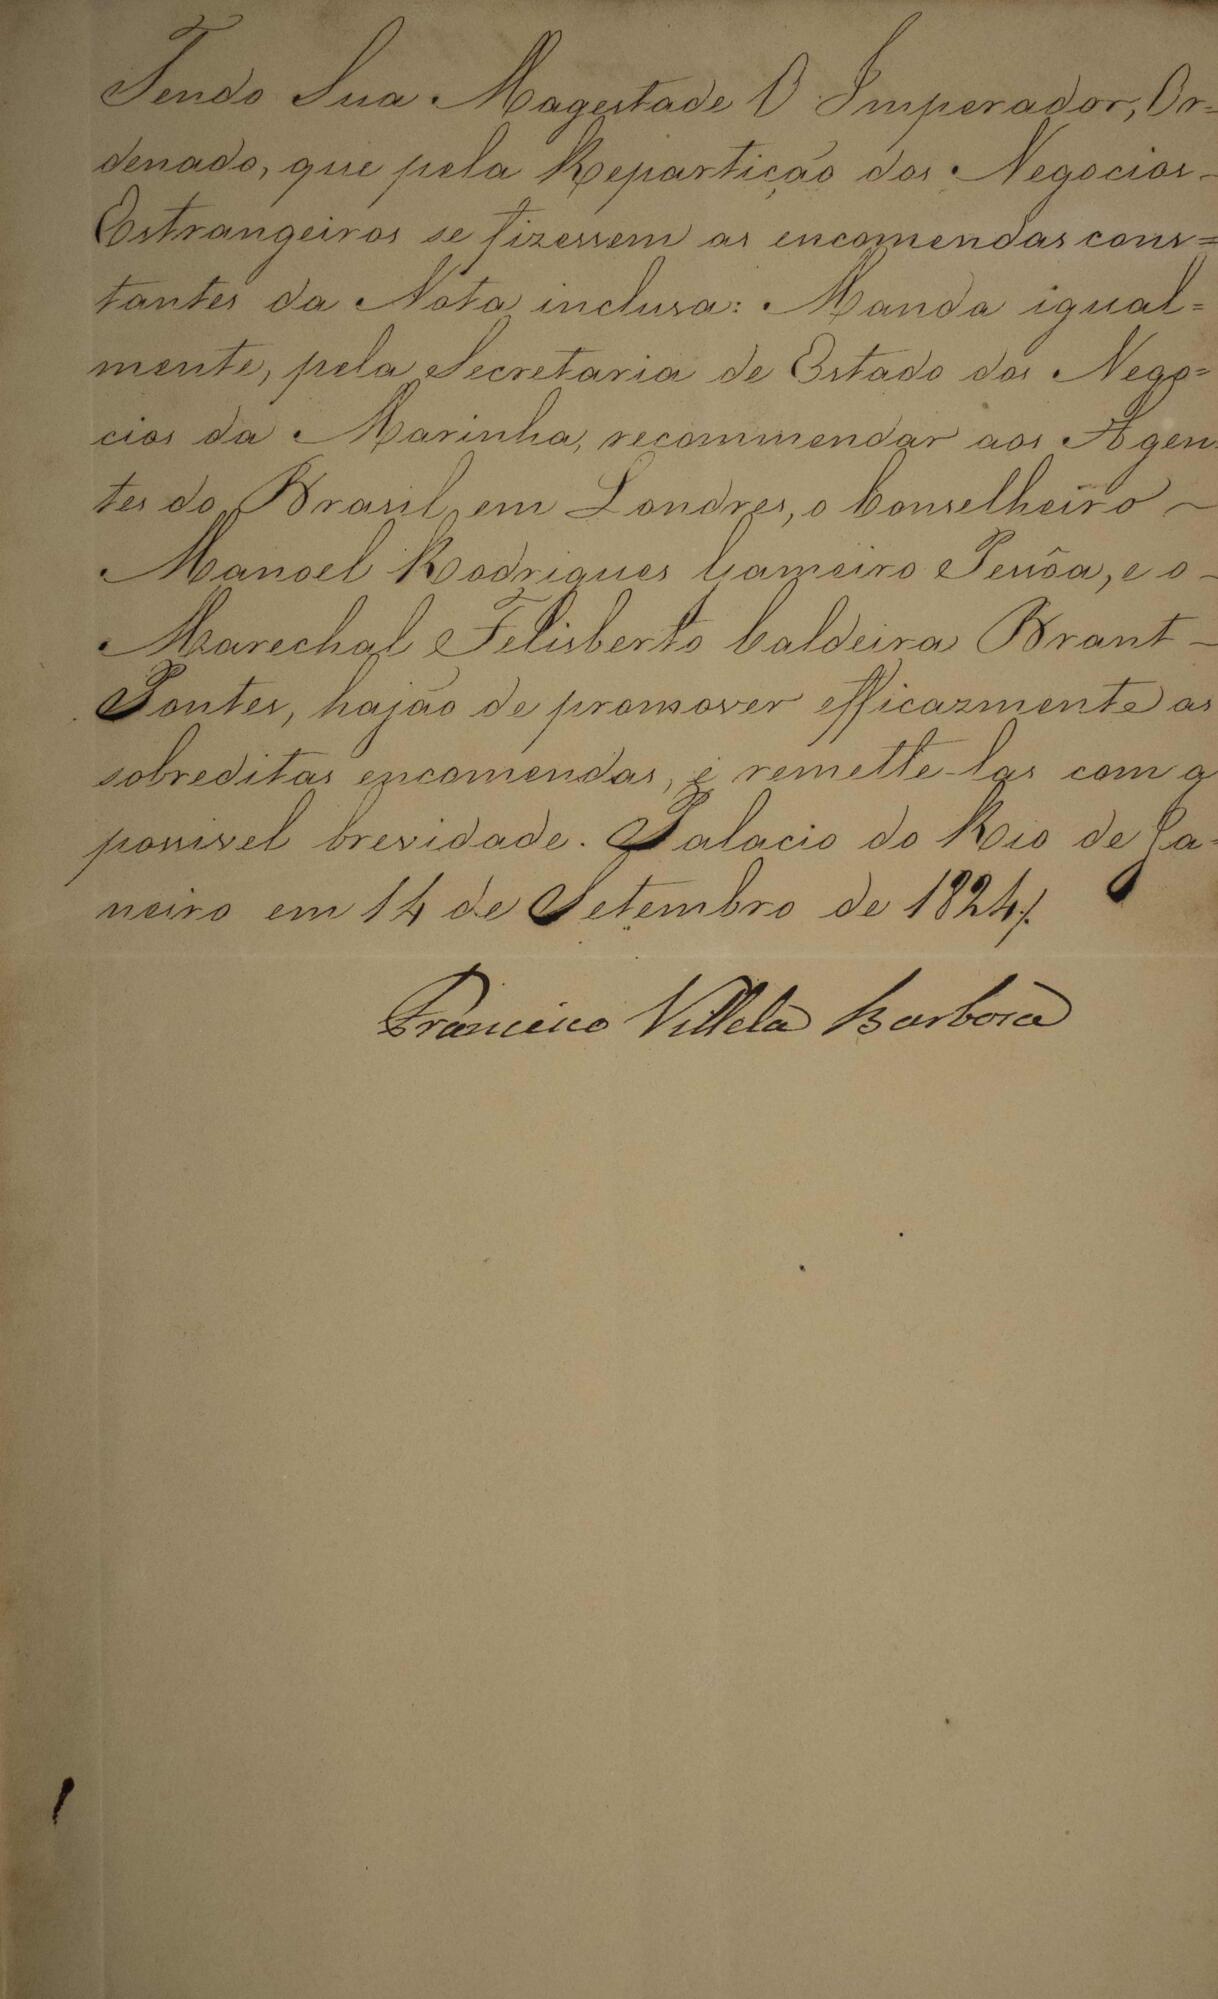 Tendo Sua Magestade O Imperador, Or=
denado, que pela Repartição dos Negocios-
Estrangeiros se fizessem as encomendas cons=
tantes da Nota inclusa: Manda igual=
mente, pela Secretaria de Estado dos Nego=
cios da Marinha, recommendar aos Agen
tes do Brasil em Londres, o Conselheiro ~
Manoel Rodrigues Gameiro Pessôa, e o -
Marechal Felisberto Caldeira Brant -
Pontes, hajão de promover efficazmente as
sobreditas encomendas, e remette-las com a
possivel brevidade. Palacio do Rio de Ja-
neiro em 14 de Setembro de 1824/.
Francisco Villela Barbosa